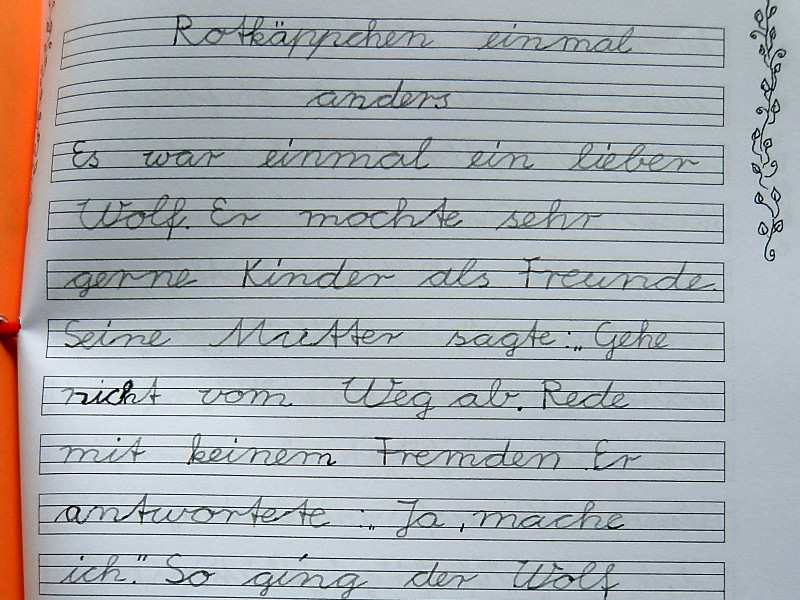 Rotkäppchen einmal
anders
Es war einmal ein lieber
Wolf. Er mochte sehr
gerne Kinder als Freunde.
Seine Mutter sagte: „Gehe
nicht vom Weg ab. Rede
mit keinem Fremden Er
antwortete: „Ja, mache
ich." So ging der Wolf